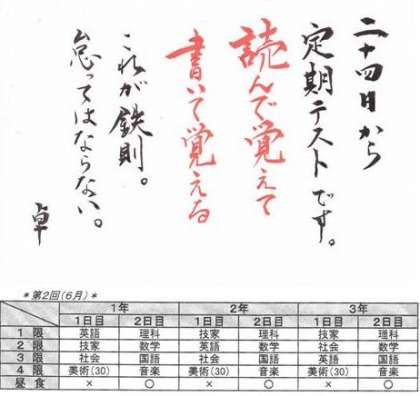 二十四日から
定期テストです。
読んで覚えて
書いて覚える
これが鉄則。
怠ってはならない。
卓
*第2回(6月)*
1年 2年 3年
1日目 2日目 1日目 2日目 1日目 2日目
1 限 英語 理科 技家 理科 技家 理科
2 限 技家 数学 英語 数学 社会 数学
3 限 社会 国語 社会 国語 英語 国語
4 限 美術(30) 音楽 美術(30) 音楽 美術(30) 音楽
昼 食 × ○ × ○ × ○